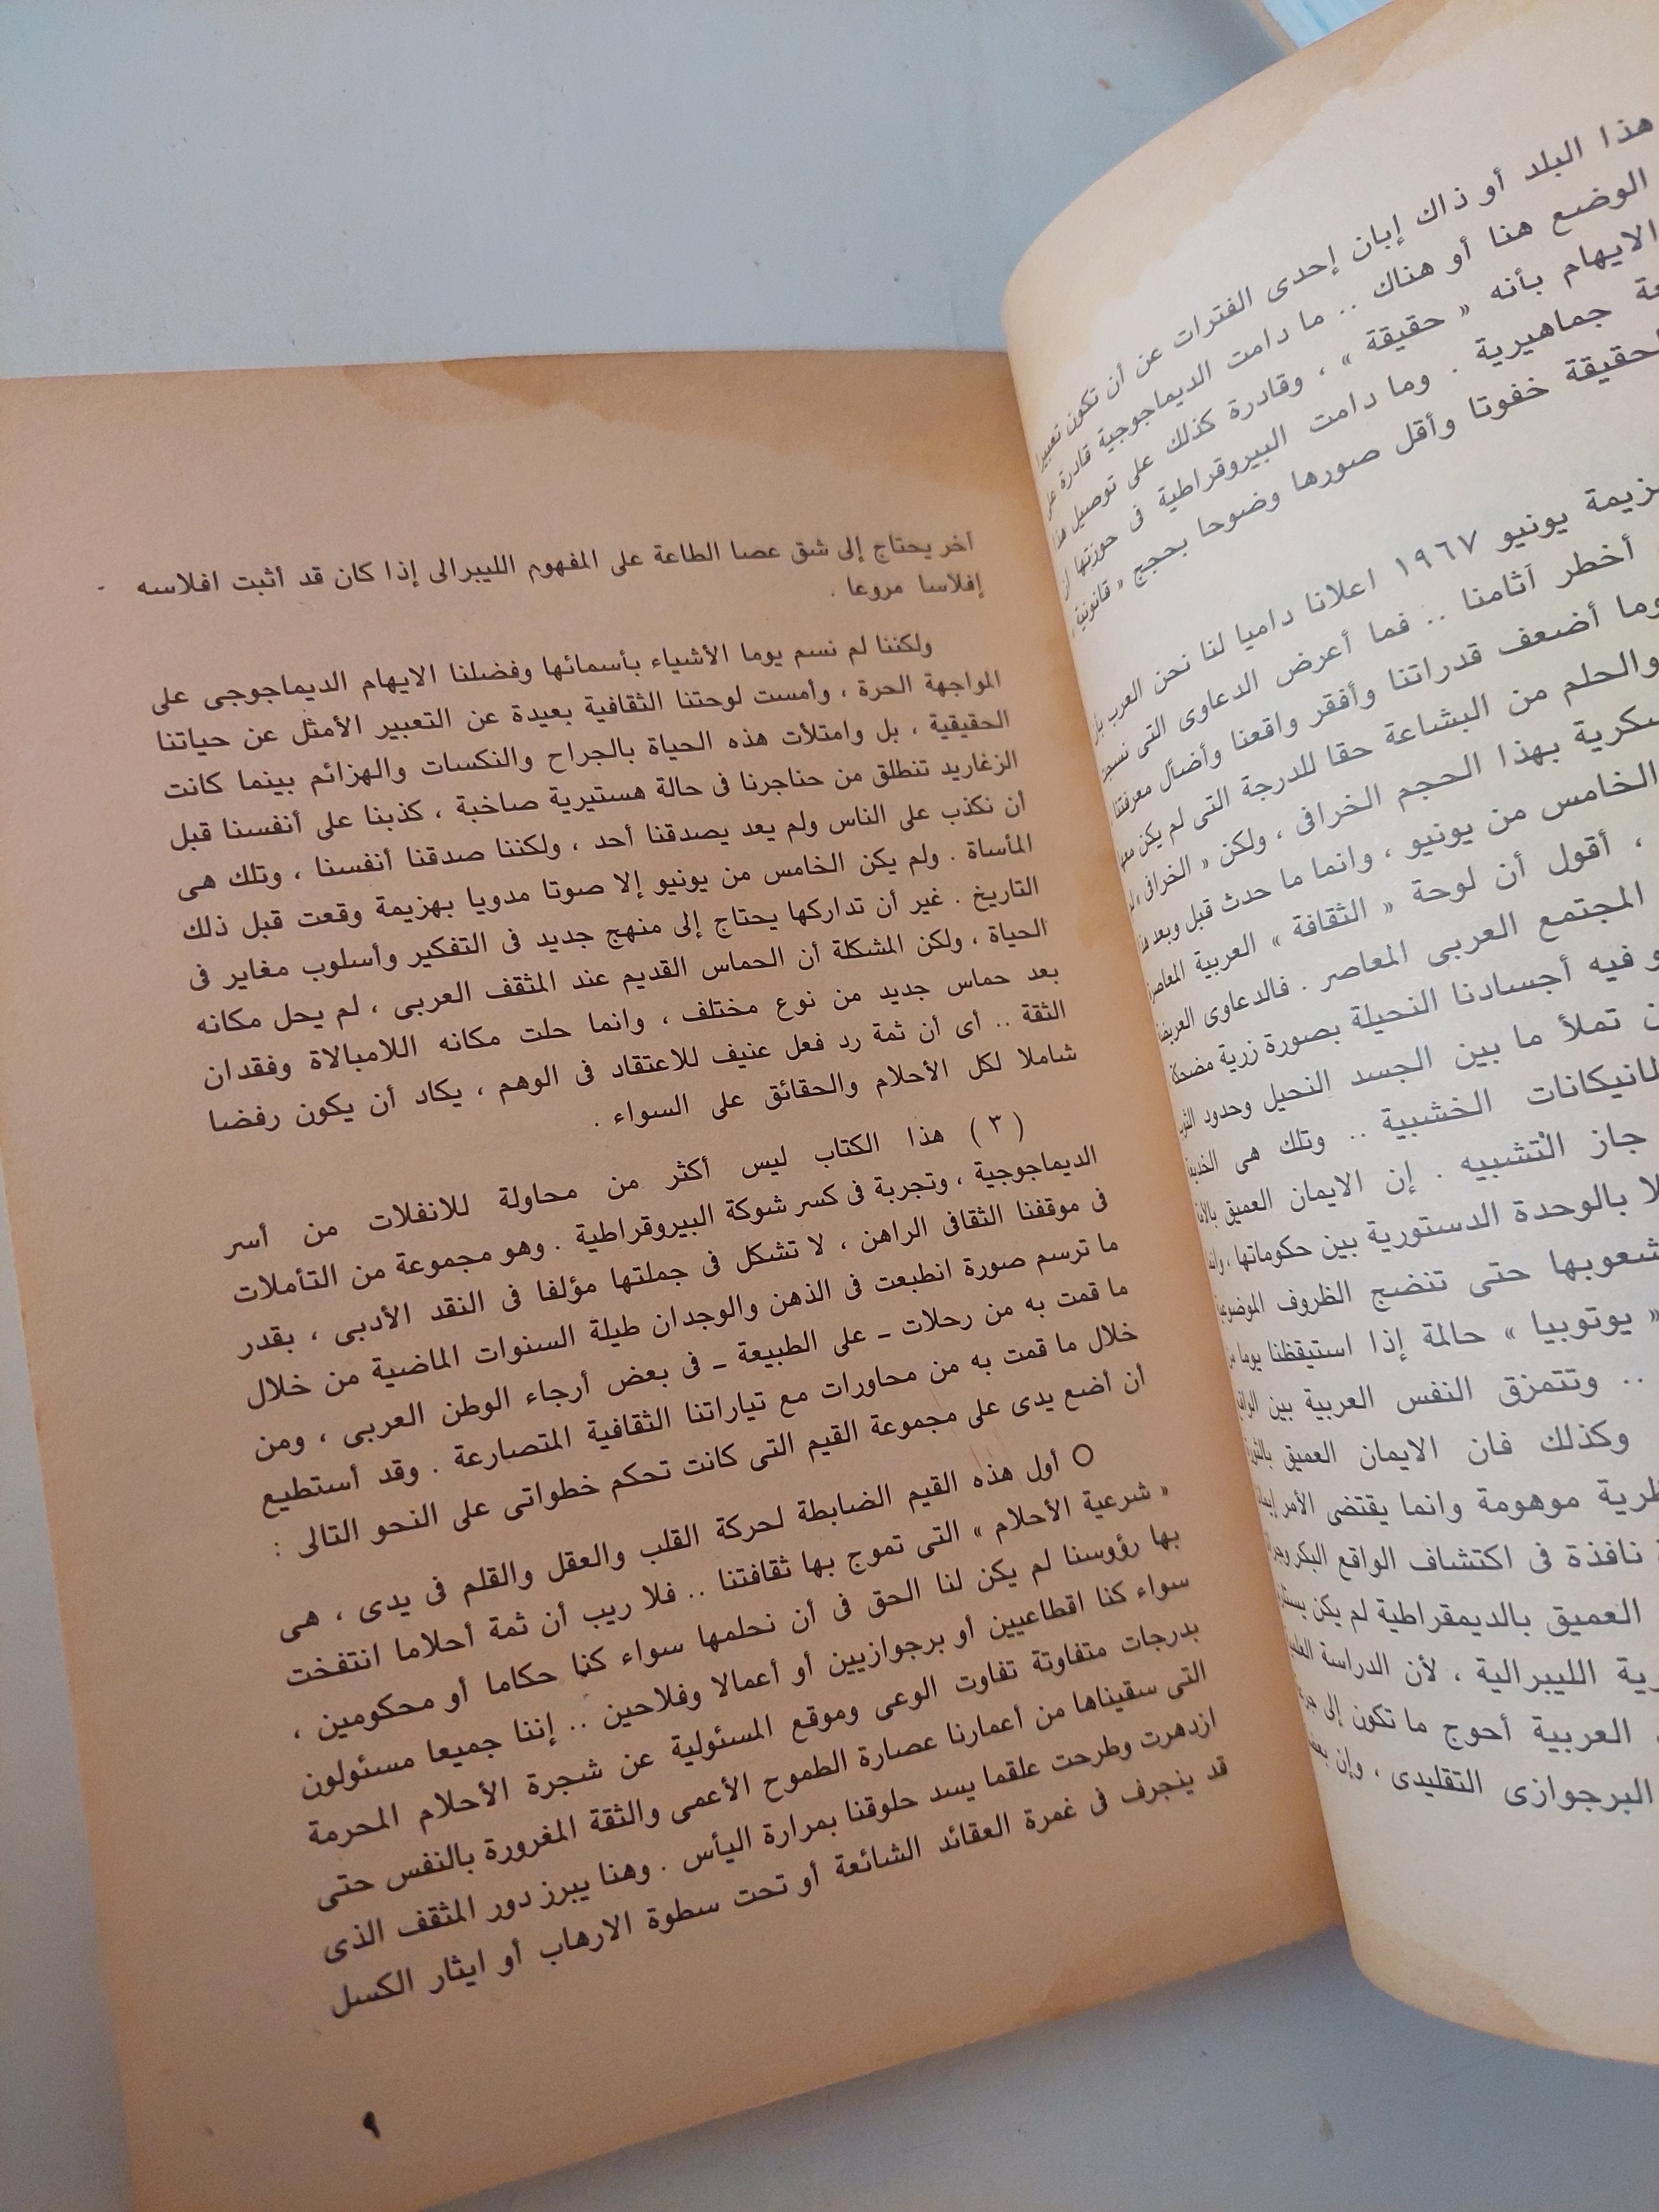 هذا البلد أو ذاك إبان إحدى الفترات عن أن تكون تعبيرا
الوضع هنا أو هناك .. ما دامت الديماجوجية قادرة على
الايهام بأنه « حقيقة » ، وقادرة كذلك على توصيل هذا
جماهيرية . وما دامت البيروقراطية فى حوزتها
خفوتا وأقل صورها وضوحا بحجج « قانونية »
يونيو ١٩٦٧ اعلانا داميا لنا نحن العرب
أخطر آثامنا .. فما أعرض الدعاوى التى
وما أضعف قدراتنا وأفقر واقعنا وأضأل معرفتنا
والحلم من البشاعة حقا للدرجة التى لم يكن
بهذا الحجم الخرافى ، ولكن « الخرافى
الخامس من يونيو ، وانما ما حدث قبل وبعد
، أقول أن لوحة « الثقافة » العربية المعاصرة
المجتمع العربى المعاصر . فالدعاوى العريضة
فيه أجسادنا النحيلة بصورة زرية مضحكة
تملأ ما بين الجسد النحيل وحدود
الخشبية .. وتلك هى
جاز التشبيه . إن الايمان العميق
بالوحدة الدستورية بين حكوماتها ، وانما
حتى تنضج الظروف الموضوعية
« يوتوبيا » حالمة إذا استيقظنا يوما
.. وتتمزق النفس العربية بين
وكذلك فان الايمان العميق
موهومة وانما يقتضى الأمر
نافذة فى اكتشاف الواقع البكر
العميق بالديمقراطية لم يكن
الليبرالية ، لأن الدراسة
العربية أحوج ما تكون إلى
البرجوازى التقليدى ، وإن
آخر يحتاج إلى شق عصا الطاعة على المفهوم الليبرالى إذا كان قد أثبت افلاسه
إفلاسا مروعا .
ولكننا لم نسم يوما الأشياء بأسمائها وفضلنا الايهام الديماجوجى على
المواجهة الحرة ، وأمست لوحتنا الثقافية بعيدة عن التعبير الأمثل عن حياتنا
الحقيقية ، بل وامتلأت هذه الحياة بالجراح والنكسات والهزائم بينما كانت
الزغاريد تنطلق من حناجرنا فى حالة هستيرية صاخبة ، كذبنا على أنفسنا قبل
أن نكذب على الناس ولم يعد يصدقنا أحد ، ولكننا صدقنا أنفسنا ، وتلك هى
المأساة . ولم يكن الخامس من يونيو إلا صوتا مدويا بهزيمة وقعت قبل ذلك
التاريخ . غير أن تداركها يحتاج إلى منهج جديد فى التفكير وأسلوب مغاير فى
الحياة ، ولكن المشكلة أن الحماس القديم عند المثقف العربى ، لم يحل مكانه
بعد حماس جديد من نوع مختلف ، وانما حلت مكانه اللامبالاة وفقدان
الثقة .. أى أن ثمة رد فعل عنيف للاعتقاد فى الوهم ، يكاد أن يكون رفضا
شاملا لكل الأحلام والحقائق على السواء .
( ٣ ) هذا الكتاب ليس أكثر من محاولة للانفلات من أسر
الديماجوجية ، وتجربة فى كسر شوكة البيروقراطية . وهو مجموعة من التأملات
فى موقفنا الثقافى الراهن ، لا تشكل فى جملتها مؤلفا فى النقد الأدبى ، بقدر
ما ترسم صورة انطبعت فى الذهن والوجدان طيلة السنوات الماضية من خلال
ما قمت به من رحلات ـ على الطبيعة ـ فى بعض أرجاء الوطن العربى ، ومن
خلال ما قمت به من محاورات مع تياراتنا الثقافية المتصارعة . وقد أستطيع
أن أضع يدى على مجموعة القيم التى كانت تحكم خطواتى على النحو التالى :
○ أول هذه القيم الضابطة لحركة القلب والعقل والقلم فى يدى ، هى
« شرعية الأحلام » التى تموج بها ثقافتنا .. فلا ريب أن ثمة أحلاما انتفخت
بها رؤوسنا لم يكن لنا الحق فى أن نحلمها سواء كنا حكاما أو محكومين ،
سواء كنا اقطاعيين أو برجوازيين أو أعمالا وفلاحين .. إننا جميعا مسئولون
بدرجات متفاوتة تفاوت الوعى وموقع المسئولية عن شجرة الأحلام المحرمة
التى سقيناها من أعمارنا عصارة الطموح الأعمى والثقة المغرورة بالنفس حتى
ازدهرت وطرحت علقما يسد حلوقنا بمرارة اليأس . وهنا يبرز دور المثقف الذى
قد ينجرف فى غمرة العقائد الشائعة أو تحت سطوة الارهاب أو ايثار الكسل
٩